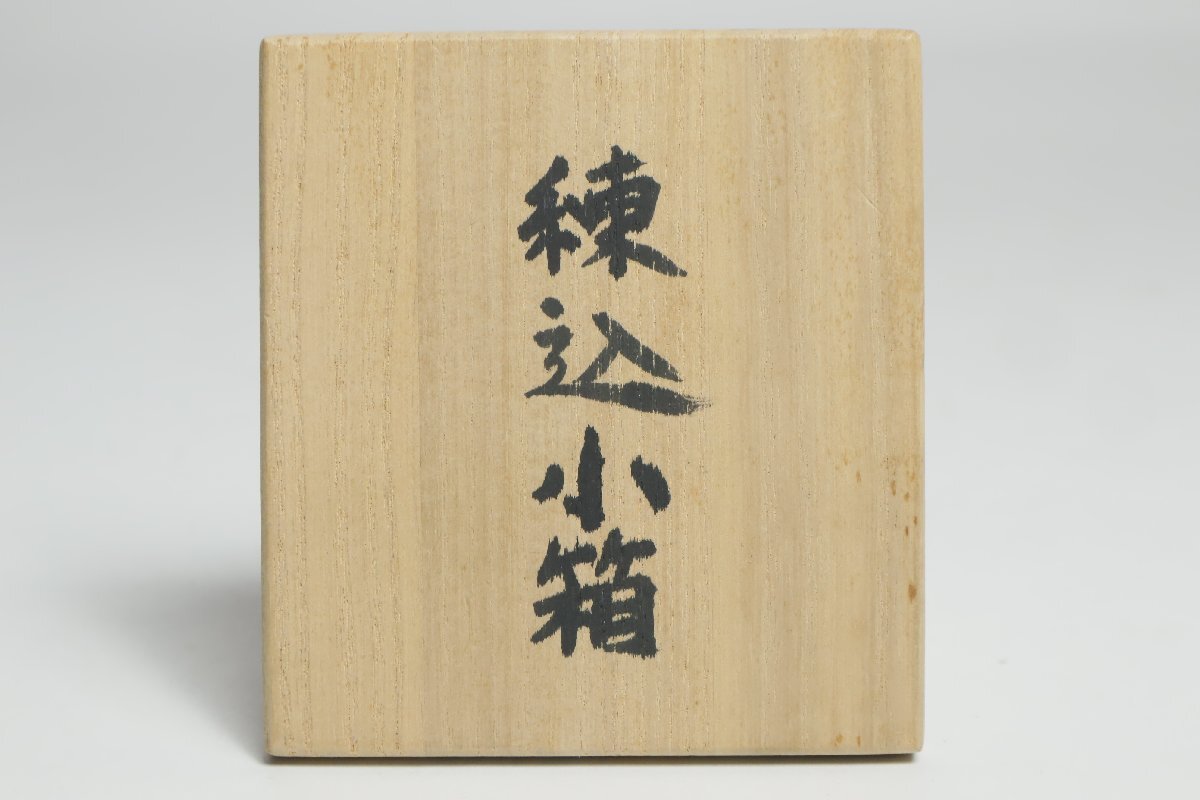 練込小箱